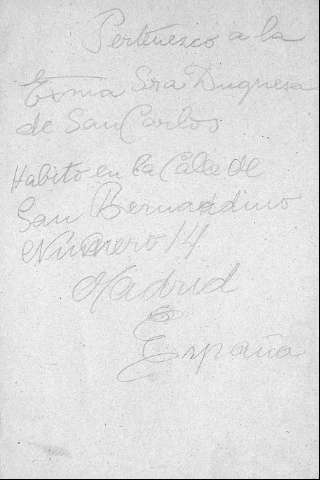 Pertenesco a la
Exma Sra Duquesa
de San Carlos
Habito en la Calle de
San Bernardino
Número 14
Madrid
España